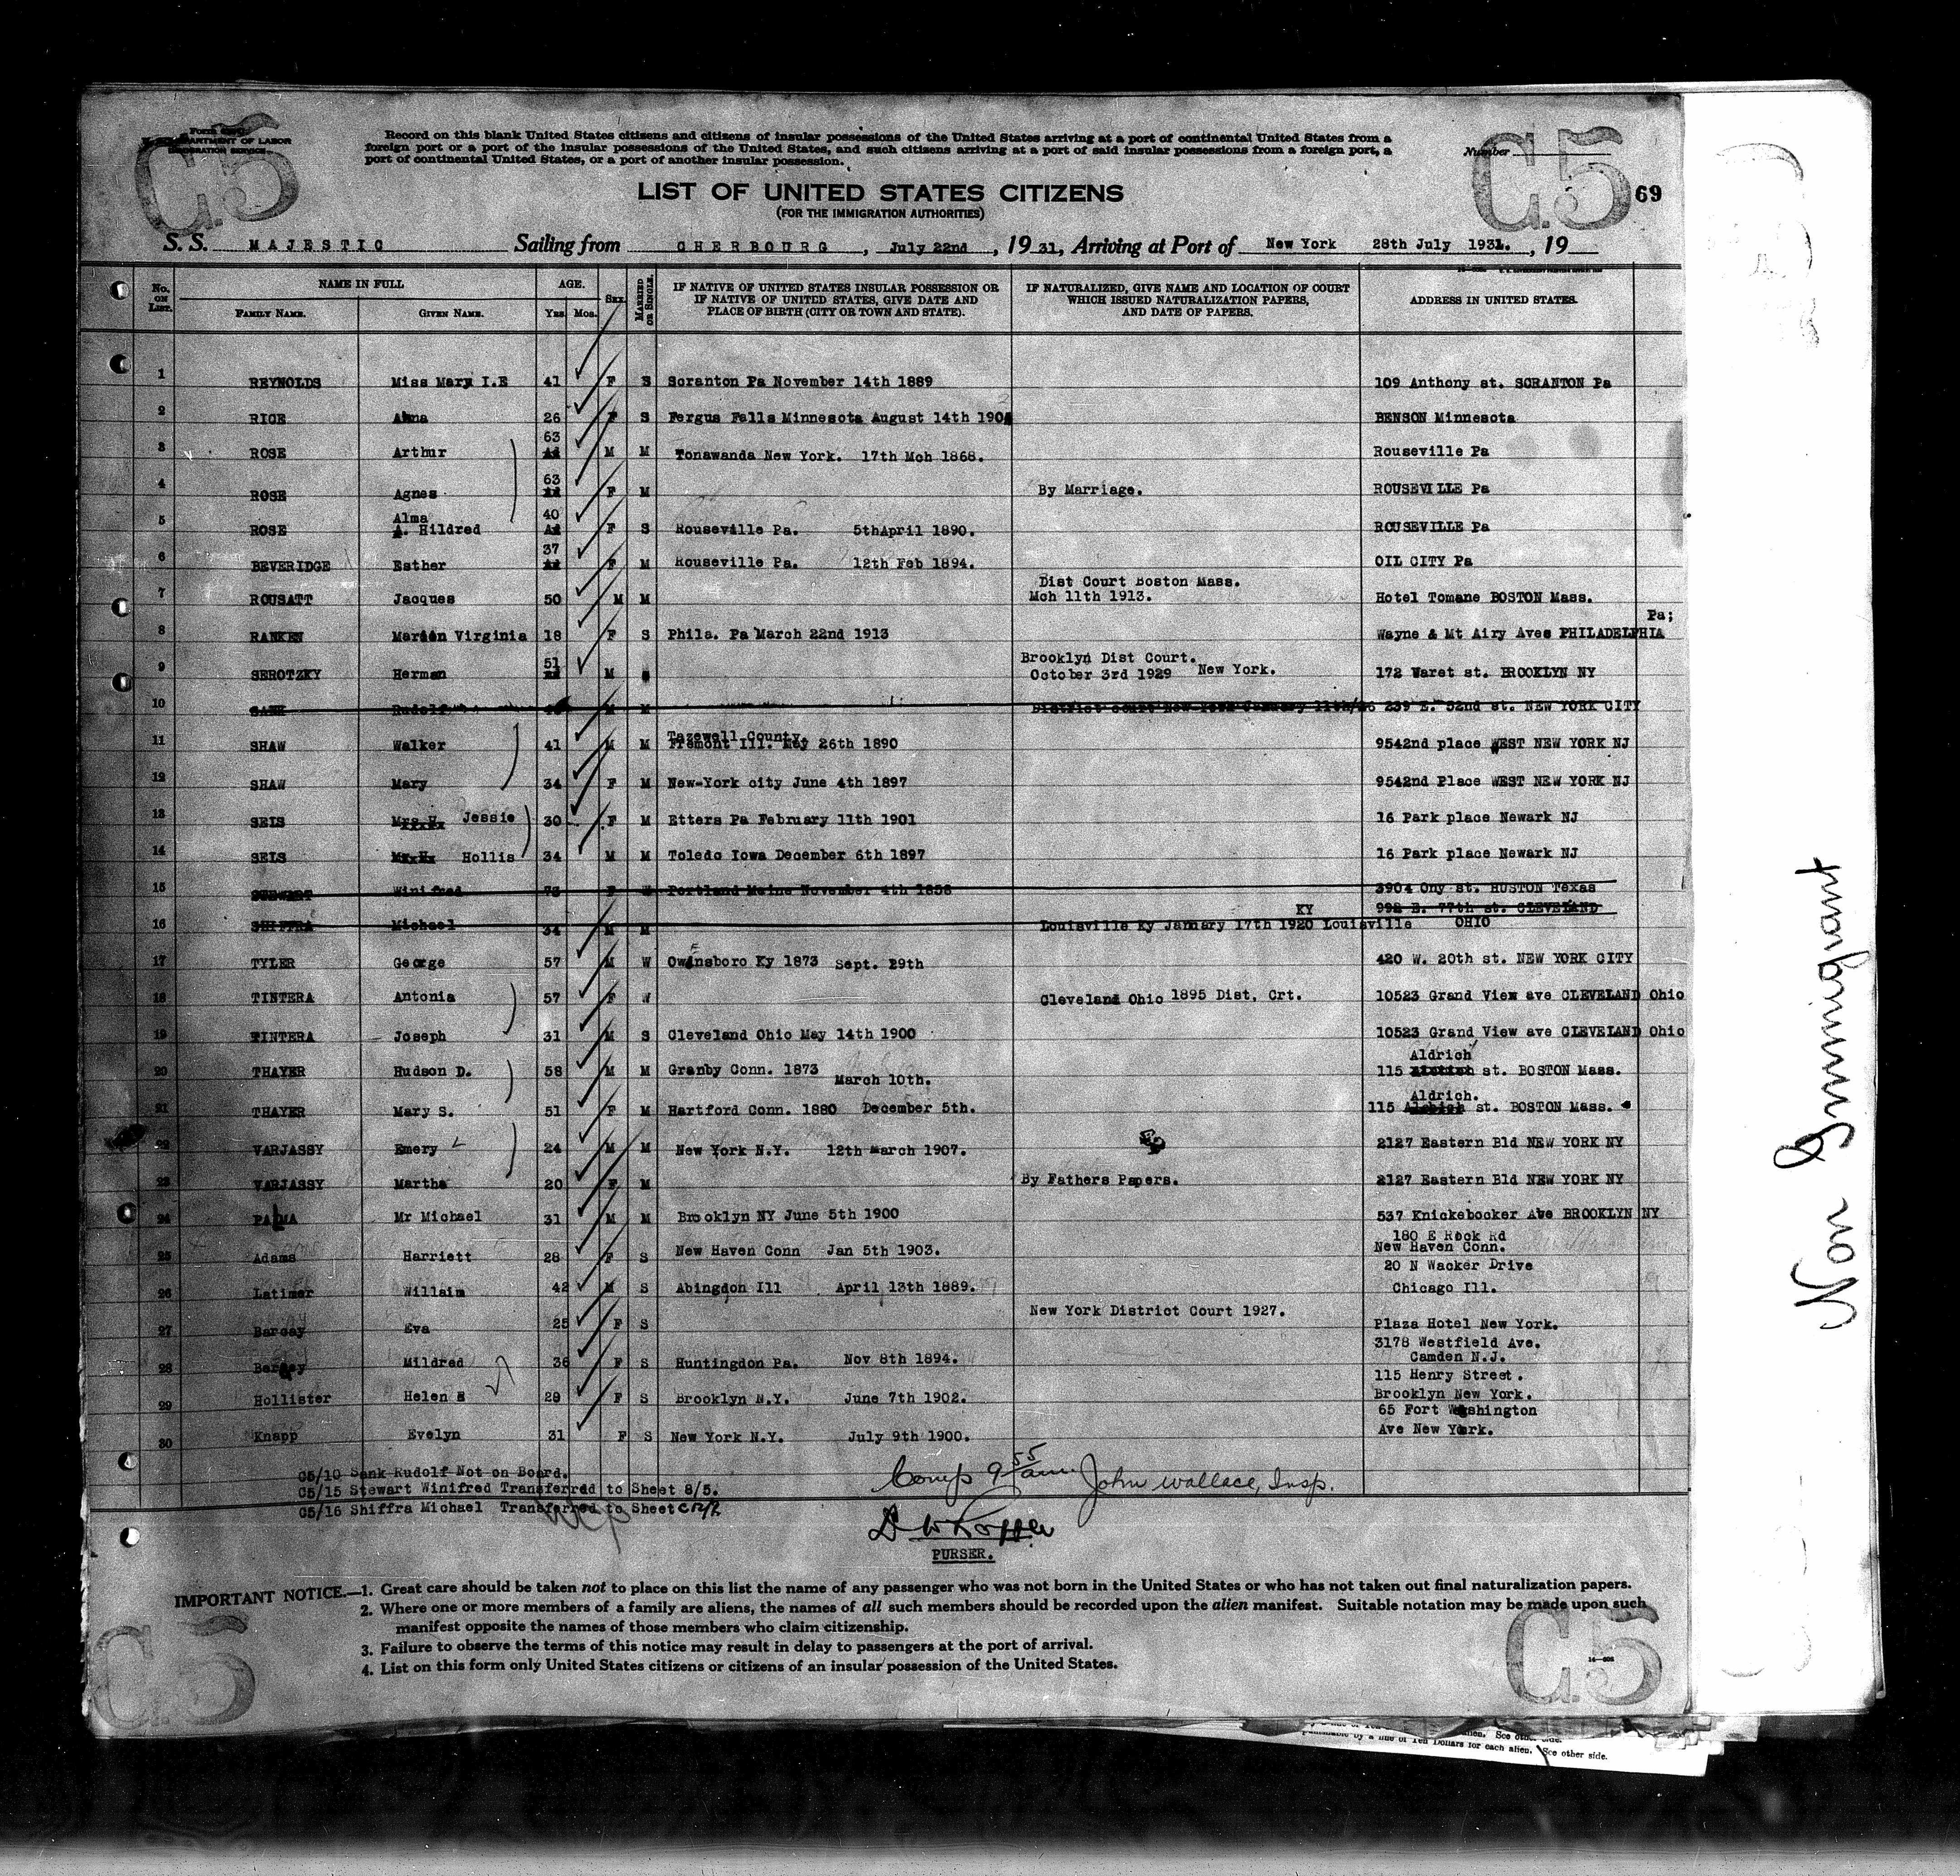 C5
DEPARTMENT OF LABOR
IMMIGRATION SERVICE
Record on this blank United States citizens and citizens of insular possessions of the United States arriving at a port of continental United States from a
foreign port or a port of the insular possessions of the United States, and such citizens arriving at a port of said insular possessions from a foreign port, a
port of continental United States, or a port of another insular possession.
Number
C5
69
LIST OF UNITED STATES CITIZENS
(FOR THE IMMIGRATION AUTHORITIES)
S. S. MAJESTIC Sailing from CHERBOURG, July 22nd, 1931, Arriving at Port of New York 28th July 1931., 19
No. on List. NAME IN FULL FAMILY NAME. GIVEN NAME. AGE. Yrs. Mos. Sex. MARRIED OR SINGLE. IF NATIVE OF UNITED STATES INSULAR POSSESSION OR IF NATIVE OF UNITED STATES, GIVE DATE AND PLACE OF BIRTH (CITY OR TOWN AND STATE). IF NATURALIZED, GIVE NAME AND LOCATION OF COURT WHICH ISSUED NATURALIZATION PAPERS, AND DATE OF PAPERS. ADDRESS IN UNITED STATES.
1 REYNOLDS Miss Mary I.E 41 F S Scranton Pa November 14th 1889 109 Anthony st. SCRANTON Pa
2 RICE Anna 26 F S Fergus Falls Minnesota August 14th BENSON Minnesota
3 ROSE Arthur 63 M M Tonawanda New York. 17th Mch 1868. Rouseville Pa
4 ROSE Agnes 63 F M By Marriage. ROUSEVILLE Pa
5 ROSE Alma A. Hildred 40 F S Rouseville Pa. 5thApril 1890. ROUSEVILLE Pa
6 BEVERIDGE Esther 37 F M Rouseville Pa. 12th Feb 1894. OIL CITY Pa
7 ROUSATT Jacques 50 M M Dist Court Boston Mass. Mch 11th 1913. Hotel Tomane BOSTON Mass.
8 RANKEN Marion Virginia 18 F S Phila. Pa March 22nd 1913 Wayne & Mt Airy Aves PHILADELPHIA Pa;
9 SEROTZKY Herman 51 M Brooklyn Dist Court. October 3rd 1929 New York. 172 Waret st. BROOKLYN NY
10 Rudolf M M District Court New York January 11th/ 239 E. 52nd st. NEW YORK CITY
11 SHAW Walker 41 M M Tazewell County. Fremont Ill. May 26th 1890 9542nd place WEST NEW YORK NJ
12 SHAW Mary 34 F M New-York city June 4th 1897 9542nd Place WEST NEW YORK NJ
13 SEIS Mrs H. Jessie 30 F M Etters Pa February 11th 1901 16 Park place Newark NJ
14 SEIS Mr H. Hollis 34 M M Toledo Iowa December 6th 1897 16 Park place Newark NJ
15 STEWART Winifred 73 F W Portland Maine November 4th 1858 3904 Ony st. HUSTON Texas
16 SHIFFRA Michael 34 M M Louisville Ky January 17th 1920 Louisville KY 992 E. 77th st. CLEVELAND OHIO
17 TYLER George 57 M W Owensboro Ky 1873 Sept. 29th 420 W. 20th st. NEW YORK CITY
18 TINTERA Antonia 57 F W Cleveland Ohio 1895 Dist. Crt. 10523 Grand View ave CLEVELAND Ohio
19 TINTERA Joseph 31 M S Cleveland Ohio May 14th 1900 10523 Grand View ave CLEVELAND Ohio
20 THAYER Hudson D. 58 M M Granby Conn. 1873 March 10th. 115 Aldrich st. BOSTON Mass.
21 THAYER Mary S. 51 F M Hartford Conn. 1880 December 5th. 115 Aldrich. st. BOSTON Mass.
22 VARJASSY Emery 24 M M New York N.Y. 12th March 1907. 2127 Eastern Bld NEW YORK NY
23 VARJASSY Martha 20 F M By Fathers Papers. 2127 Eastern Bld NEW YORK NY
24 PALMA Mr Michael 31 M M Brooklyn NY June 5th 1900 537 Knickebocker Ave BROOKLYN NY
25 Adams Harriett 28 F S New Haven Conn Jan 5th 1903. 180 E Rock Rd New Haven Conn.
26 Latimer Willaim 42 M S Abingdon Ill April 13th 1889. 20 N Wacker Drive Chicago Ill.
27 Barcay Eva 25 F S New York District Court 1927. Plaza Hotel New York.
28 Mildred 36 F S Huntingdon Pa. Nov 8th 1894. 3178 Westfield Ave. Camden N.J.
29 Hollister Helen S 29 F S Brooklyn N.Y. June 7th 1902. 115 Henry Street. Brooklyn New York.
30 Knapp Evelyn 31 F S New York N.Y. July 9th 1900. 65 Fort Washington Ave New York.
C5/10 Sank Rudolf Not on Board.
C5/15 Stewart Winifred Transferred to Sheet 8/5.
C5/16 Shiffra Michael Transferred to Sheet
Comp 9 55 am John Wallace, Insp.
PURSER.
IMPORTANT NOTICE.—1. Great care should be taken not to place on this list the name of any passenger who was not born in the United States or who has not taken out final naturalization papers.
2. Where one or more members of a family are aliens, the names of all such members should be recorded upon the alien manifest. Suitable notation may be made upon such
manifest opposite the names of those members who claim citizenship.
3. Failure to observe the terms of this notice may result in delay to passengers at the port of arrival.
4. List on this form only United States citizens or citizens of an insular possession of the United States.
C5
C5
Non Immigrant
alien. See other side.
punishable by a fine of Ten Dollars for each alien. See other side.